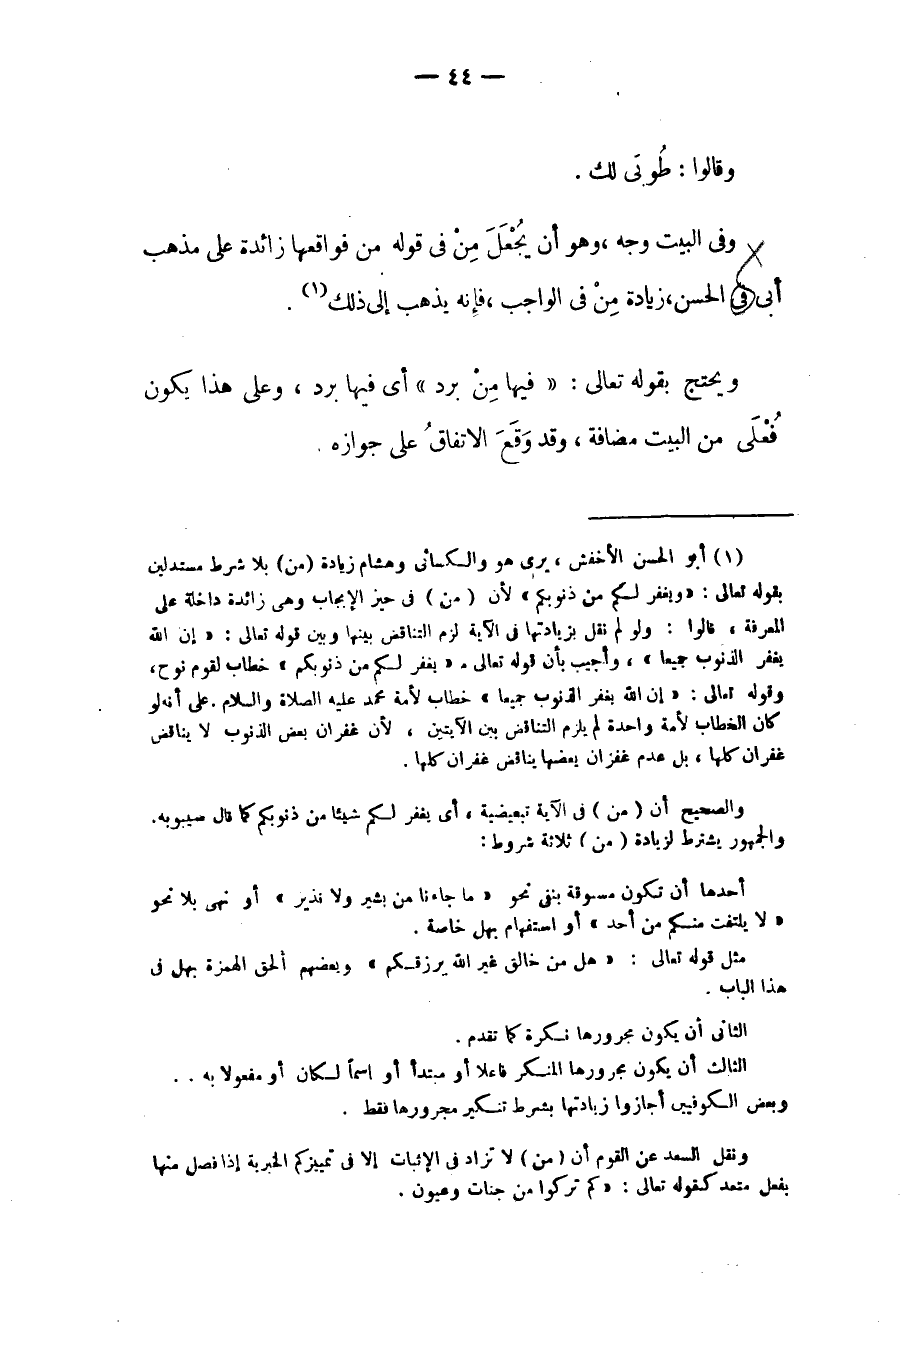 — ٤٤ —
وقالوا : طُوبَى لك .
وفى البيت وجه ،وهو أن يُجْعَلَ مِنْ فى قوله من فواقعها زائدة على مذهب
أبى فى الحسن،زيادة مِنْ فى الواجب ،فإنه يذهب إلى ذلك (١) .
ويحتج بقوله تعالى : « فيها مِنْ برد » أى فيها برد ، وعلى هذا يكون
فُعْلَى من البيت مضافة ، وقد وَقَعَ الاتفاقُ على جوازه .
(١) أبو الحسن الأخفش ، يرى هو والكسائى وهشام زيادة (من) بلا شرط مستدلين
بقوله تعالى : «ويغفر لكم من ذنوبكم» لأن ( من ) فى حيز الإيجاب وهى زائدة داخلة على
المعرفة ، قالوا : ولو لم نقل بزيادتها فى الآية لزم التناقض بينها وبين قوله تعالى : « إن الله
يغفر الذنوب جميعا » ، وأجيب بأن قوله تعالى . « يغفر لكم من ذنوبكم » خطاب لقوم نوح،
وقوله تعالى : « إن الله يغفر الذنوب جميعا » خطاب لأمة محمد عليه الصلاة والسلام .على أنه لو
كان الخطاب لأمة واحدة لم يلزم التناقض بين الآيتين ، لأن غفران بعض الذنوب لا يناقض
غفران كلها ، بل عدم غفران بعضها يناقض غفران كلها .
والصحيح أن ( من ) فى الآية تبعيضية ، أى يغفر لكم شيئا من ذنوبكم كما قال سيبويه.
والجمهور يشترط لزيادة ( من ) ثلاثة شروط :
أحدها أن تكون مسوقة بنفى نحو « ما جاءنا من بشير ولا نذير » أو نهى بلا نحو
« لا يلتفت منكم من أحد » أو استفهام بهل خاصة .
مثل قوله تعالى : « هل من خالق غير الله يرزقكم » وبعضهم ألحق الهمزة بهل فى
هذا الباب .
الثانى أن يكون مجرورها نكرة كما تقدم .
الثالث أن يكون مجرورها المنكر فاعلا أو مبتدأ أو اسماً لكان أو مفعولا به . .
وبعض الكوفيين أجازوا زيادتها بشرط تنكير مجرورها فقط .
ونقل السعد عن القوم أن ( من ) لا تزاد فى الإثبات إلا فى تمييزكم الخبرية إذا فصل منها
بفعل متعد كقوله تعالى : «كم تركوا من جنات وعيون .